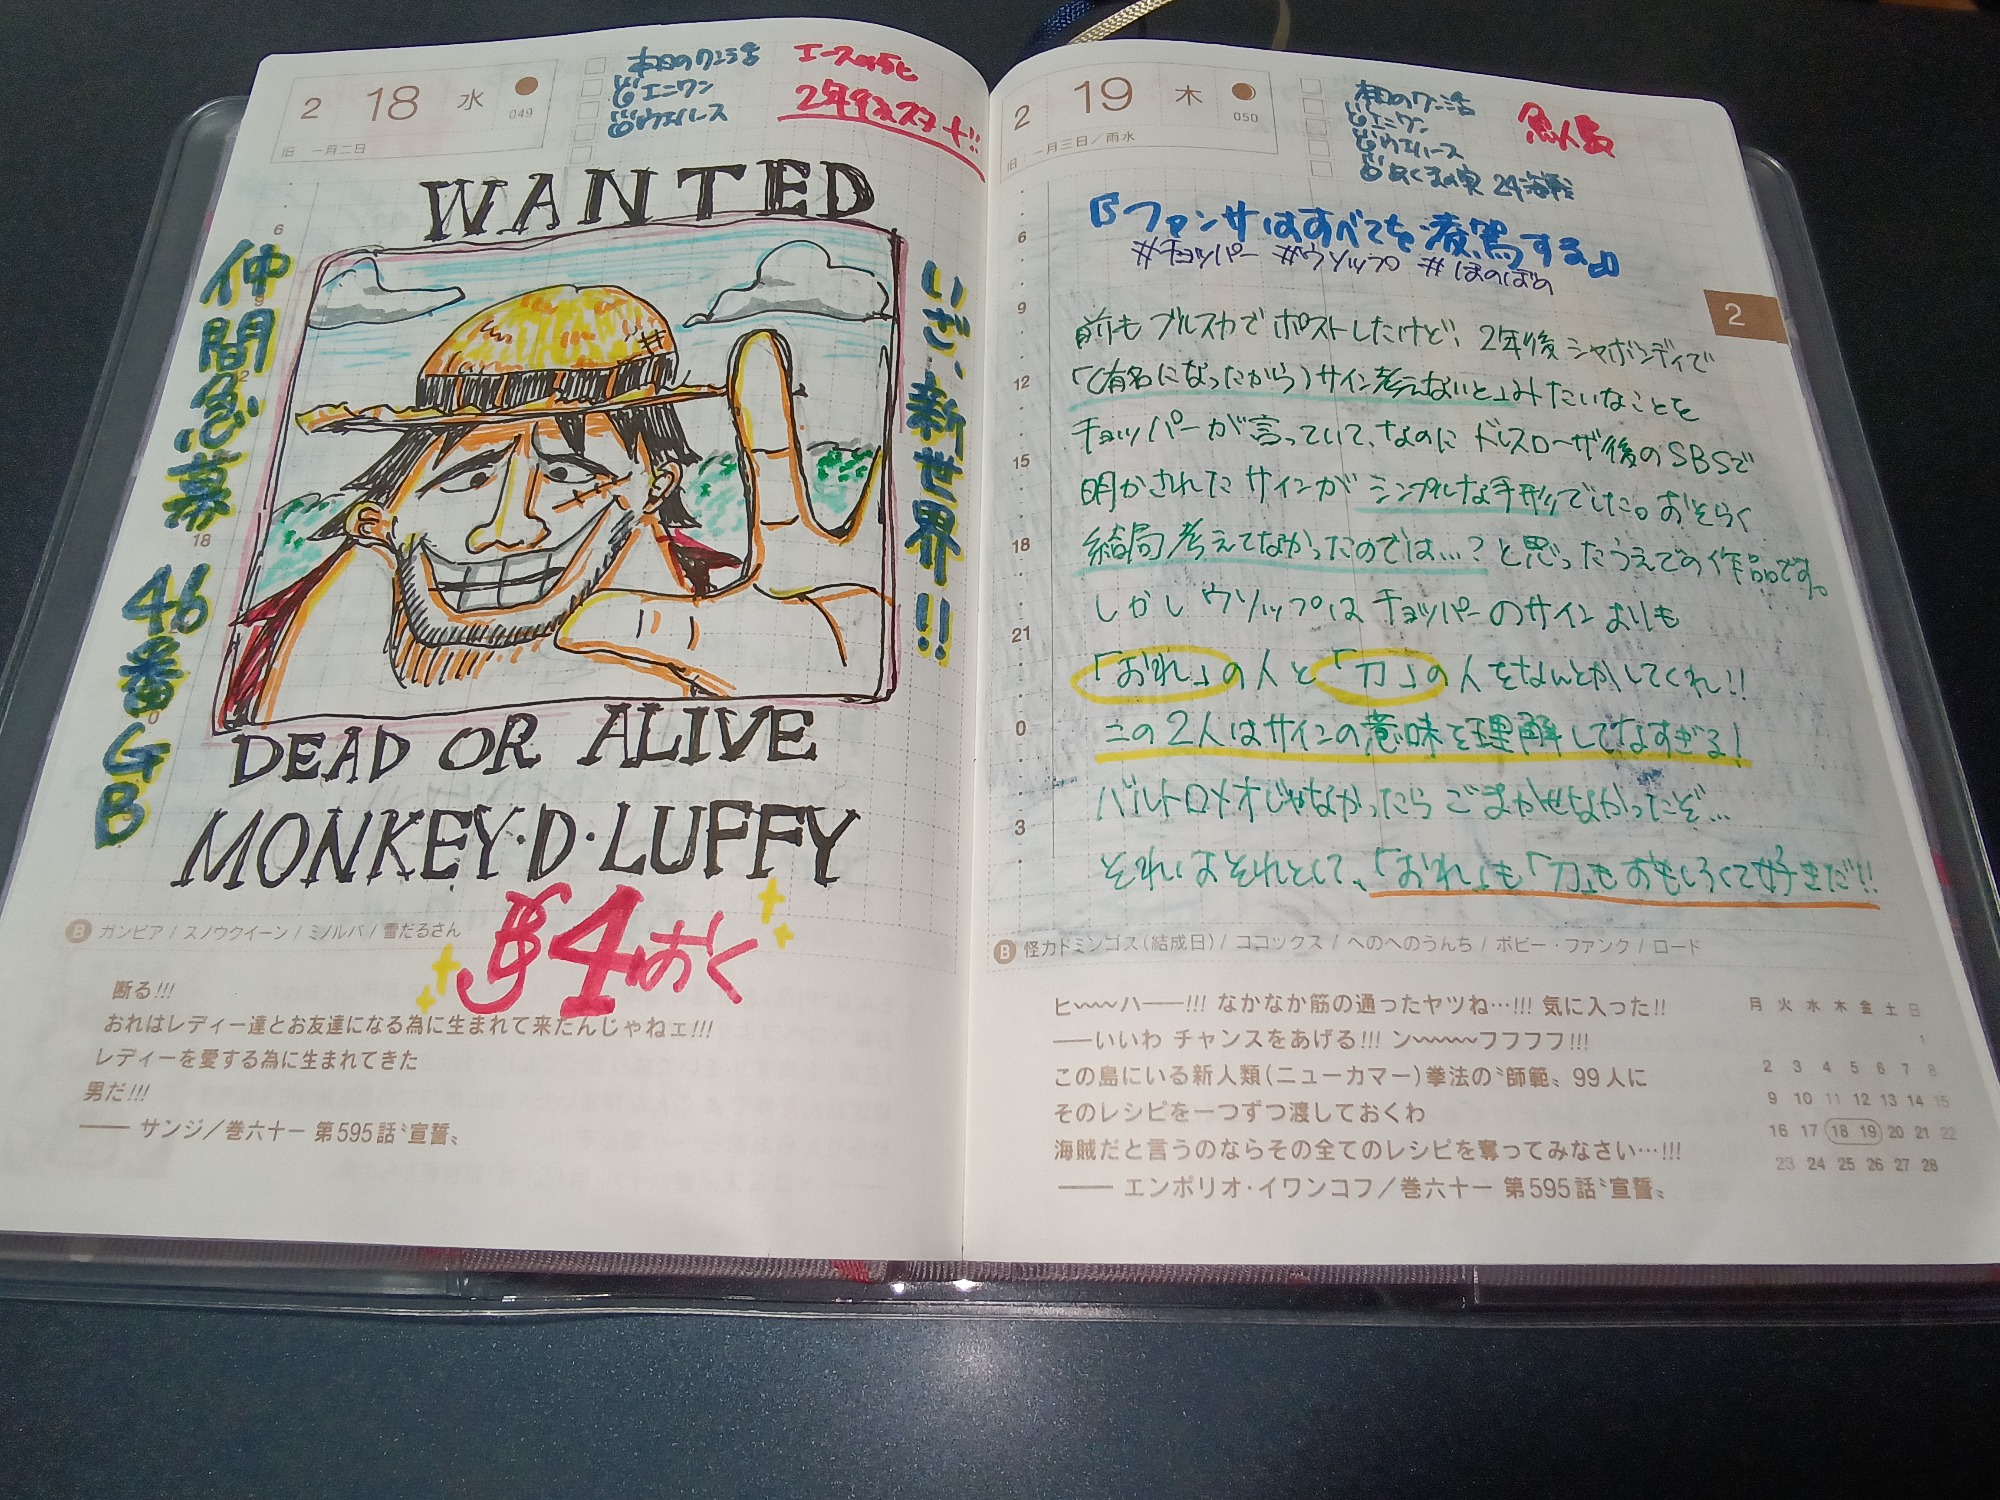 2 18 水
049
旧 一月二日
本日のワンコ活
エニワン
ウエハース
エースの死と
2年後スタート!!
WANTED
仲間急募 46番GB
いざ、新世界!!
6
18
DEAD OR ALIVE
MONKEY・D・LUFFY
฿4おく
B ガンビア / スノウクイーン / ミノルバ / 雪だるさん
断る!!!
おれはレディー達とお友達になる為に生まれて来たんじゃねェ!!!
レディーを愛する為に生まれてきた
男だ!!!
―― サンジ／巻六十一 第595話〝宣誓〟
2 19 木
050
旧 一月三日／雨水
本日のワンコ活
エニワン
ウエハース
あくまの実 24海戦
魚人島
2
『ファンサはすべてを凌駕する』
#チョッパー #ウソップ #ほのぼの
6
9
12
15
18
21
0
3
前もブルスカでポストしたけど、2年後シャボンディで
「(有名になったから)サイン考えないと」みたいなことを
チョッパーが言っていて、なのにドレスローザ後のSBSで
明かされたサインがシンプルな手形でした。おそらく
結局考えてなかったのでは…?と思ったうえでの作品です。
しかしウソップはチョッパーのサインよりも
「おれ」の人と「刀」の人をなんとかしてくれ!!
この2人はサインの意味を理解してなすぎる!
バルトロメオじゃなかったらごまかせなかったぞ…
それはそれとして、「おれ」も「刀」もおもしろくて好きだ!!
B 怪力ドミンゴス(結成日) / ココックス / へのへのうんち / ボビー・ファンク / ロード
ヒ〜〜〜ハ――!!! なかなか筋の通ったヤツね…!!! 気に入った!!
――いいわ チャンスをあげる!!! ン〜〜〜〜フフフフ!!!
この島にいる新人類(ニューカマー)拳法の〝師範〟99人に
そのレシピを一つずつ渡しておくわ
海賊だと言うのならその全てのレシピを奪ってみなさい…!!!
―― エンポリオ・イワンコフ／巻六十一 第595話〝宣誓〟
月 火 水 木 金 土 日
1
2 3 4 5 6 7 8
9 10 11 12 13 14 15
16 17 18 19 20 21 22
23 24 25 26 27 28